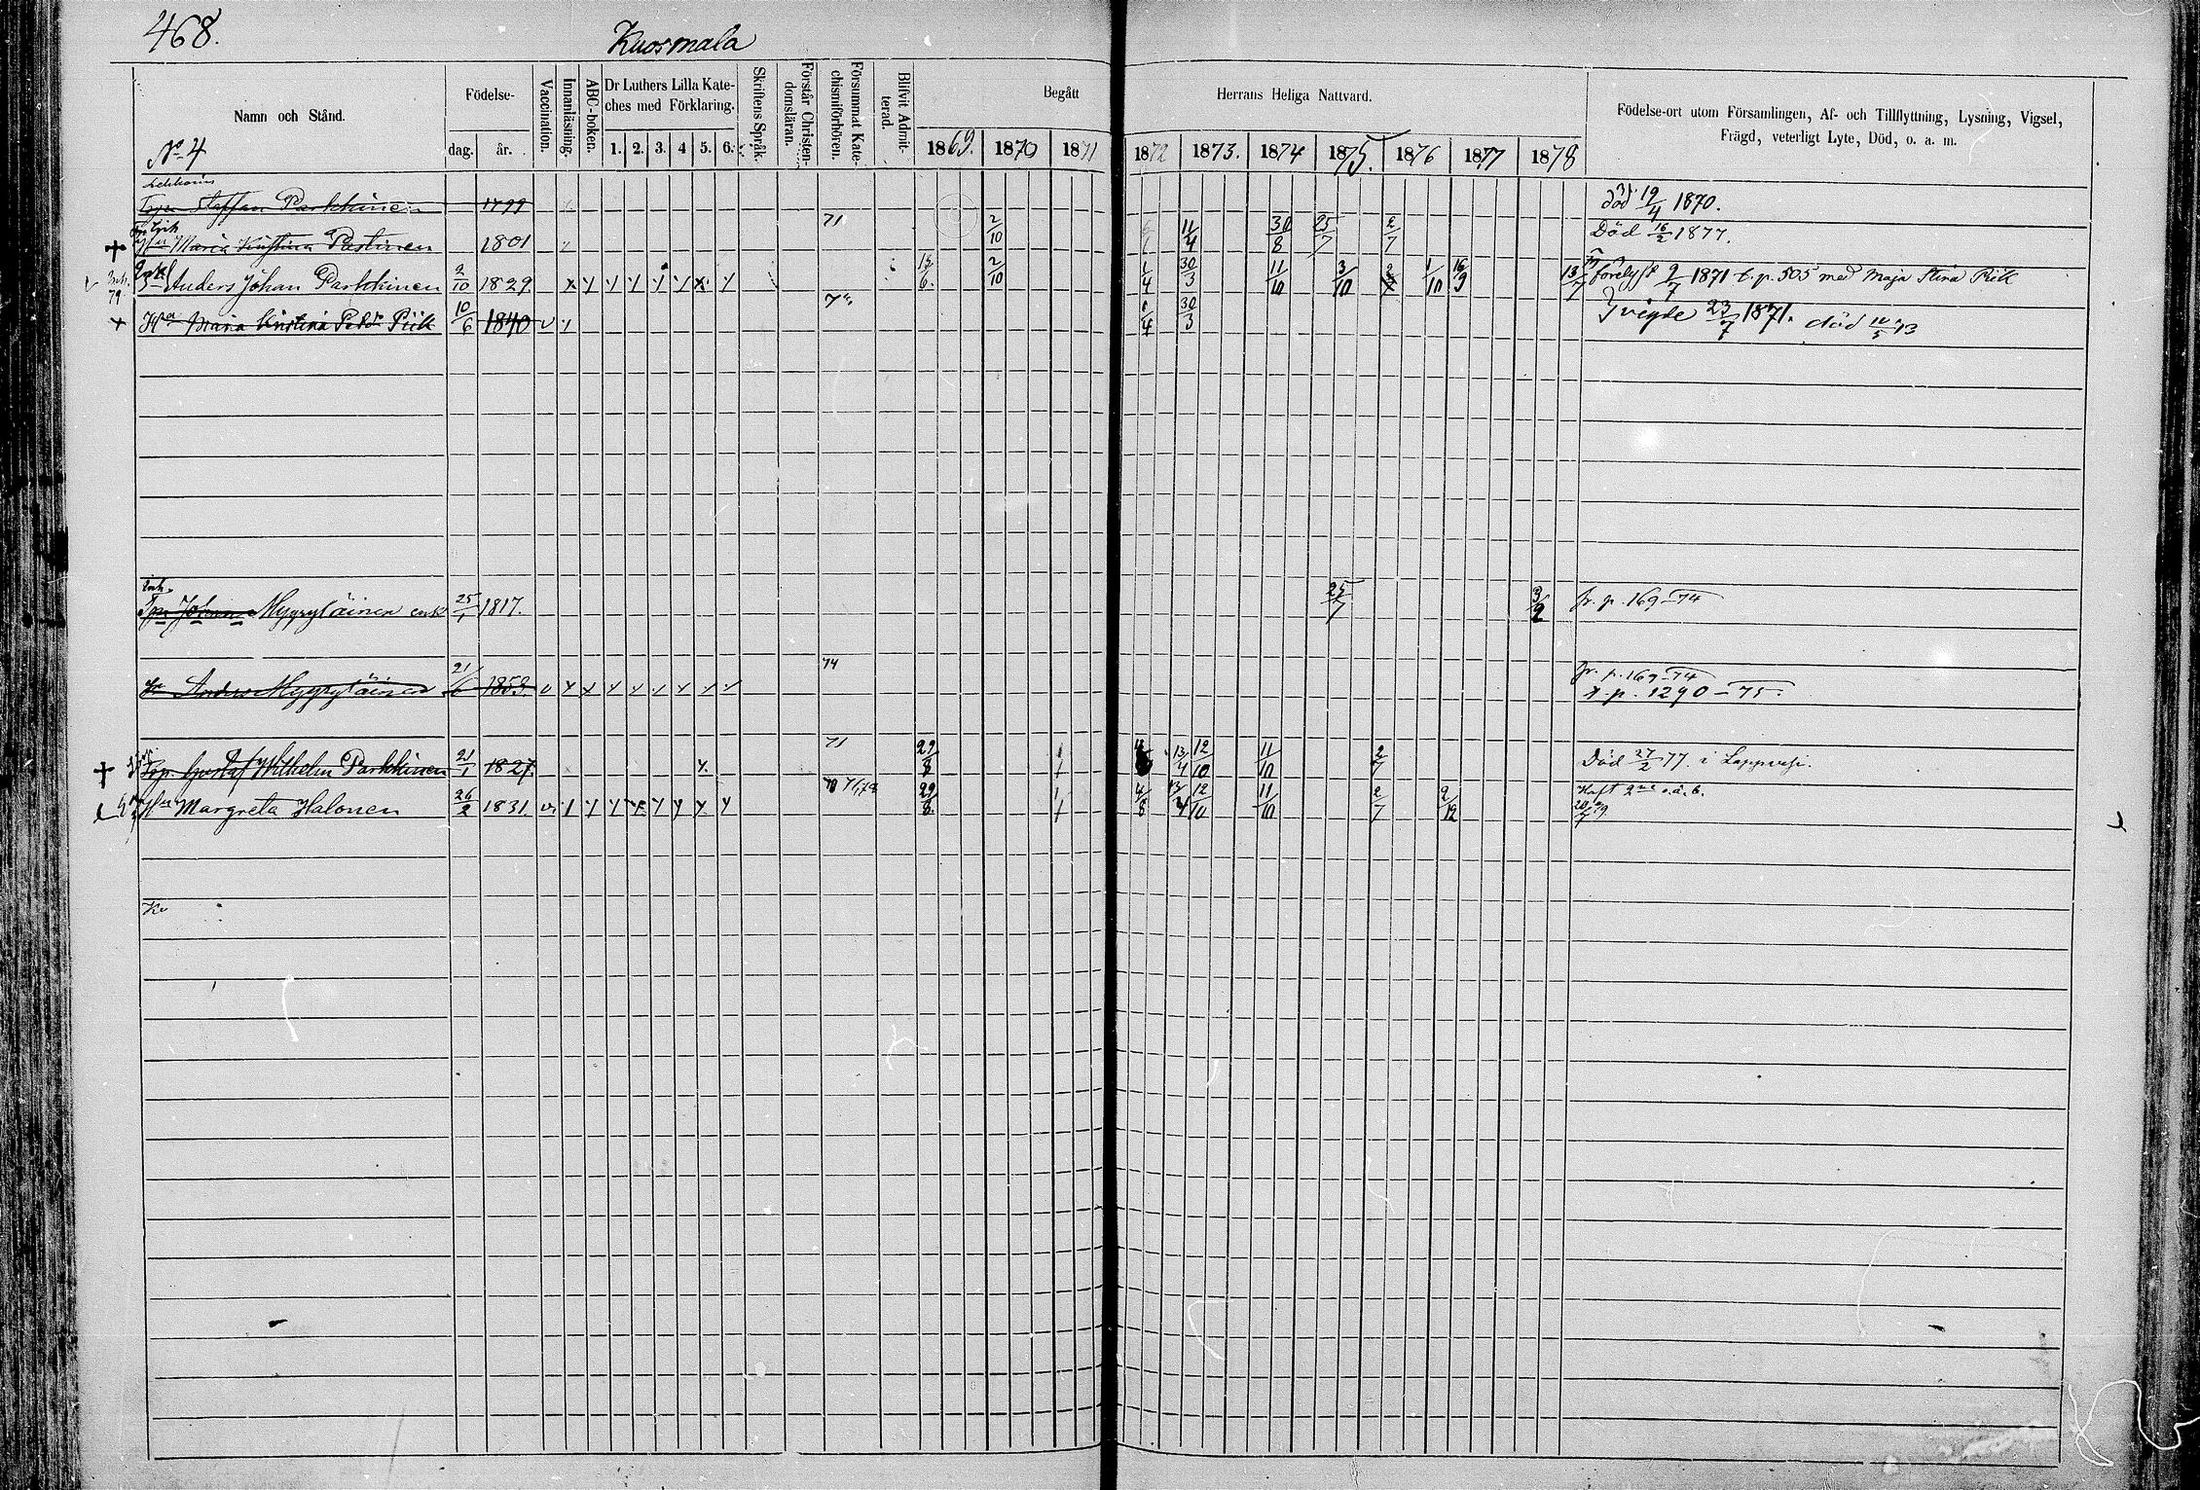 468.
Kuosmala
Namn och Stånd.
Födelse-
dag. år.
Vaccination.
Innanläsning.
ABC-boken.
Dr Luthers Lilla Kate-
ches med Förklaring.
1. 2. 3. 4 5. 6.
Skriftens Språk.
Förstår Christen-
domsläran.
Försummat Kate-
chismiförhören.
Blifvit Admit-
terad.
Begått Herrans Heliga Nattvard.
1869. 1870 1871 1872 1873. 1874 1875. 1876 1877 1878
Födelse-ort utom Församlingen, Af- och Tillflyttning, Lysning, Vigsel,
Frägd, veterligt Lyte, Död, o. a. m.
No 4
Staffan Parkkinen 1799 död 19/4 1870.
Maria Kristina Pastinen 1801 71 2/10 11/4 30/8 25/7 2/7 Död 16/2 1877.
Anders Johan Parkkinen 2/10 1829 2/10 1/4 30/3 11/10 3/10 1/10 16/9 13/7 förelyst 9/7 1871 t.p. 505 med Maja Stina Piik
Maria Kristina Piik 10/6 1840 v 1/4 30/3 vigde 23/7 1871. död 10/5 73
Johanna Myyryläinen enk 25/1 1817. 25/7 3/2 fr. p. 169-74
Anders Myyryläinen 21/6 1853 v 74 fr. p. 169-74
t. p. 1290-75.
Gustaf Wilhelm Parkkinen 21/1 1827. 71 29/8 13/4 12/10 11/10 2/7 Död 27/2 77. i Lappvesi.
Margreta Halonen 26/2 1831. v 29/8 4/8 12/10 11/10 2/7 9/12 Haft